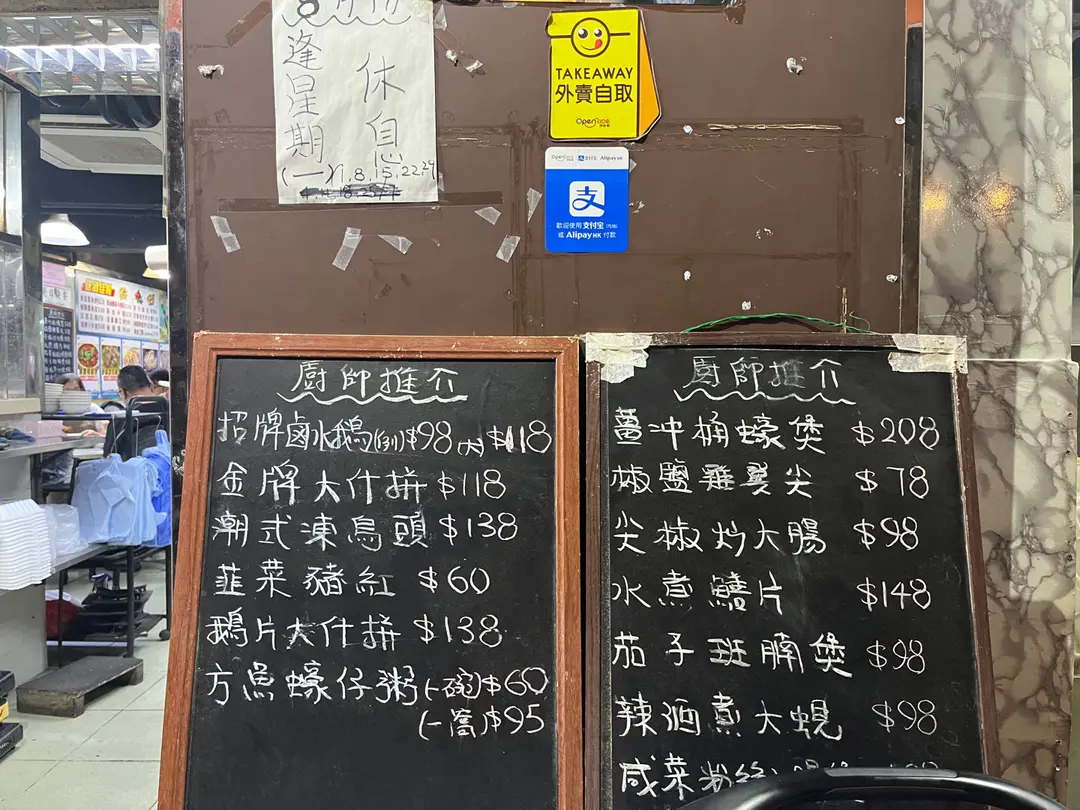 逢星期
休息
(一)1,8,15,22,29
TAKEAWAY
外賣自取
OpenRice
OpenRice 支付宝 AlipayHK
支
歡迎使用 支付宝
或 AlipayHK 付款
廚師推介
招牌鹵水鵝(例)$98 (大)$118
金牌大什拼 $118
潮式凍烏頭 $138
韮菜豬紅 $60
鵝片大什拼 $138
方魚蠔仔粥(一碗)$60
(一窩)$95
廚師推介
薑冲桶蠔煲 $208
椒鹽雞翼尖 $78
尖椒炒大腸 $98
水煮鱔片 $148
茄子班腩煲 $98
辣酒煮大蜆 $98
咸菜粉絲